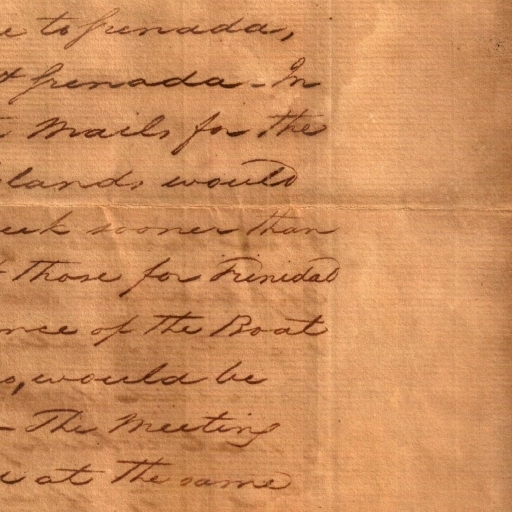 e to Grenada,
t Grenada - In
Mails for the
lands would
eek sooner than
those for Trinidad
nce of the Boat
o, would be
- The Meeting
e at the same